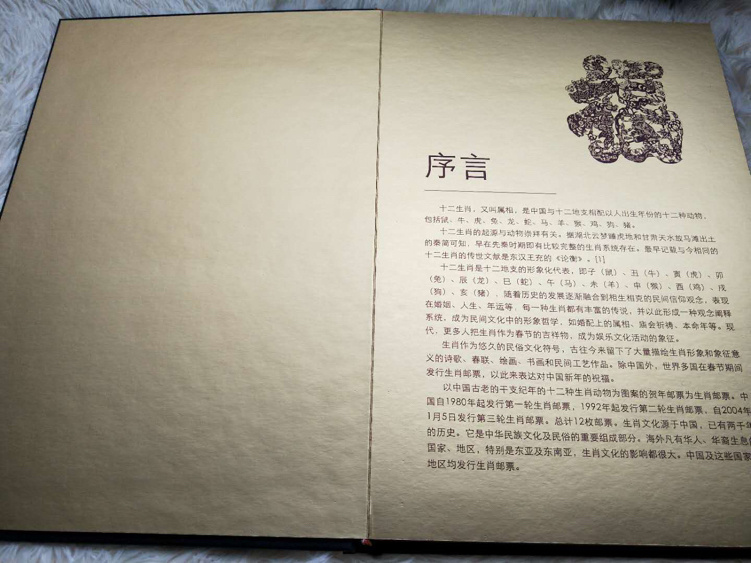 序言
十二生肖，又叫属相，是中国与十二地支相配以人出生年份的十二种动物，
包括鼠、牛、虎、兔、龙、蛇、马、羊、猴、鸡、狗、猪。
十二生肖的起源与动物崇拜有关。据湖北云梦睡虎地和甘肃天水放马滩出土
的秦简可知，早在先秦时期即有比较完整的生肖系统存在。最早记载与今相同的
十二生肖的传世文献是东汉王充的《论衡》。[1]
十二生肖是十二地支的形象化代表，即子（鼠）、丑（牛）、寅（虎）、卯
（兔）、辰（龙）、巳（蛇）、午（马）、未（羊）、申（猴）、酉（鸡）、戌
（狗）、亥（猪），随着历史的发展逐渐融合到相生相克的民间信仰观念，表现
在婚姻、人生、年运等，每一种生肖都有丰富的传说，并以此形成一种观念阐释
系统，成为民间文化中的形象哲学，如婚配上的属相、庙会祈祷、本命年等。现
代，更多人把生肖作为春节的吉祥物，成为娱乐文化活动的象征。
生肖作为悠久的民俗文化符号，古往今来留下了大量描绘生肖形象和象征意
义的诗歌、春联、绘画、书画和民间工艺作品。除中国外，世界多国在春节期间
发行生肖邮票，以此来表达对中国新年的祝福。
以中国古老的干支纪年的十二种生肖动物为图案的贺年邮票为生肖邮票。中
国自1980年起发行第一轮生肖邮票，1992年起发行第二轮生肖邮票，自2004年
1月5日发行第三轮生肖邮票。总计12枚邮票。生肖文化源于中国，已有两千年
的历史。它是中华民族文化及民俗的重要组成部分。海外凡有华人、华裔生息的
国家、地区，特别是东亚及东南亚，生肖文化的影响都很大。中国及这些国家
地区均发行生肖邮票。